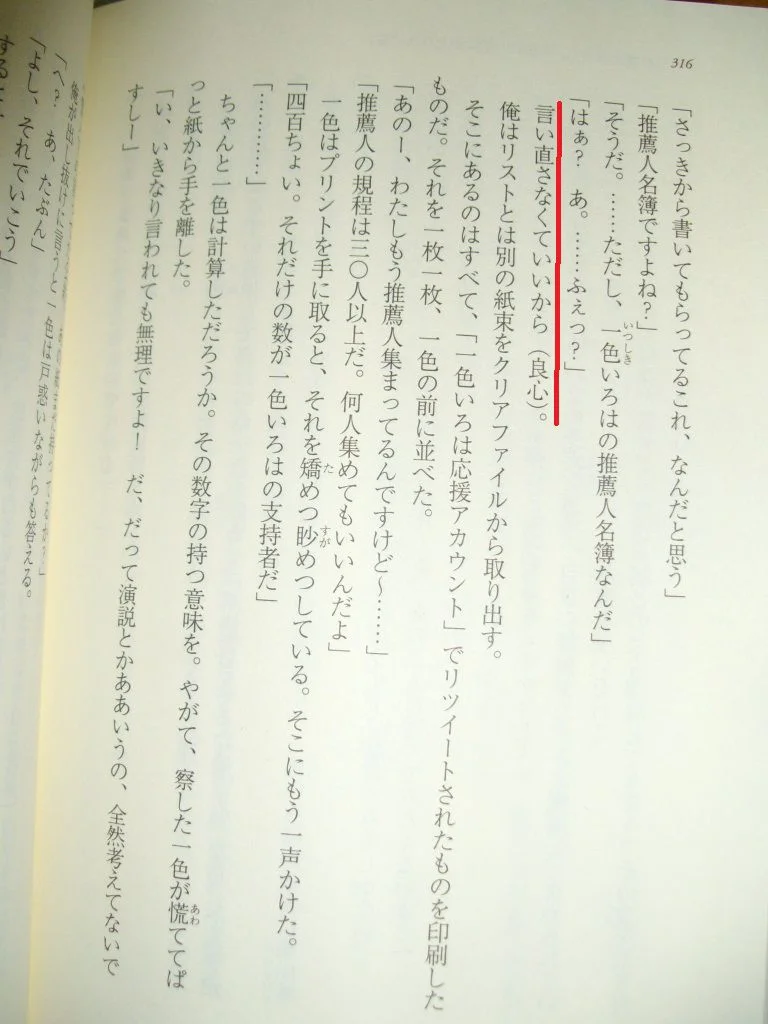 316
「さっきから書いてもらってるこれ、なんだと思う」
「推薦人名簿ですよね?」
「そうだ。……ただし、一色いろはの推薦人名簿なんだ」
いつしき
「はぁ? あ。……ふぇっ?」
言い直さなくていいから(良心)。
俺はリストとは別の紙束をクリアファイルから取り出す。
そこにあるのはすべて、「一色いろは応援アカウント」でリツイートされたものを印刷した
ものだ。それを一枚一枚、一色の前に並べた。
「あのー、わたしもう推薦人集まってるんですけど〜……」
「推薦人の規程は三〇人以上だ。何人集めてもいいんだよ」
一色はプリントを手に取ると、それを矯めつ眇めつしている。そこにもう一声かけた。
た
すが
「四百ちょい。それだけの数が一色いろはの支持者だ」
「…………」
ちゃんと一色は計算しただろうか。その数字の持つ意味を。やがて、察した一色が慌ててぱ
あわ
っと紙から手を離した。
「い、いきなり言われても無理ですよ! だ、だって演説とかああいうの、全然考えてないで
すしー」
俺が出し抜けに言うと一色は戸惑いながらも答える。
「へ? あ、たぶん」
「よし、それでいこう」